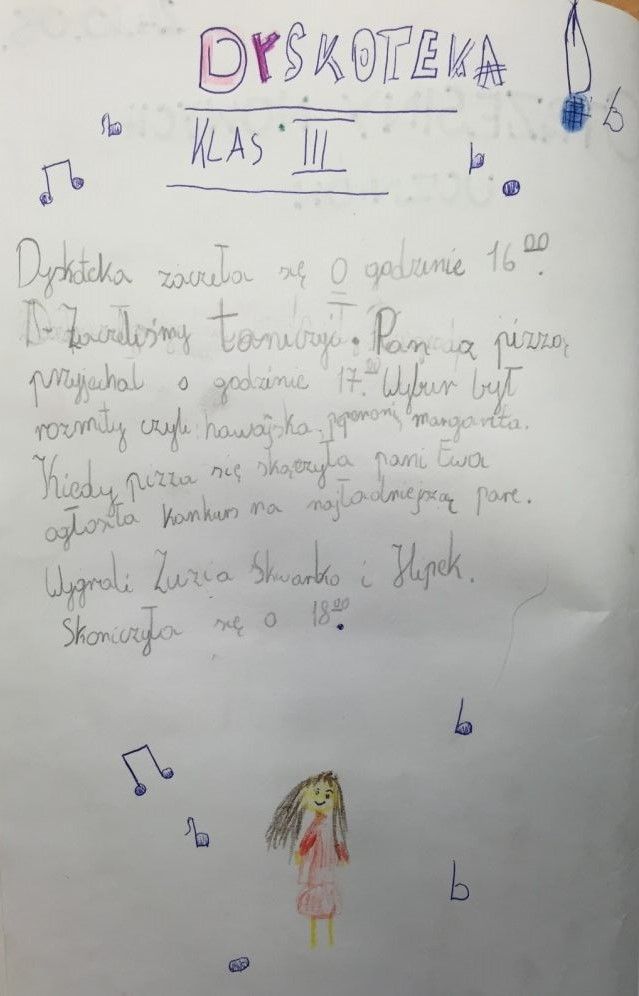 DYSKOTEKA
KLAS III
Dyskoteka zaczeła się O godzinie 16⁰⁰.
Zaczeliśmy tańczyć. Pan z pizzą
przyjechal o godzinie 17.⁰⁰ Wybur był
rozmity czyli: hawajska, peperoni, margarita.
Kiedy pizza się skączyła pani Ewa
ogłosiła konkurs na najładniejszą pare.
Wygrali Zuzia Skwarko i Hipek.
Skoniczyła się o 18⁰⁰.